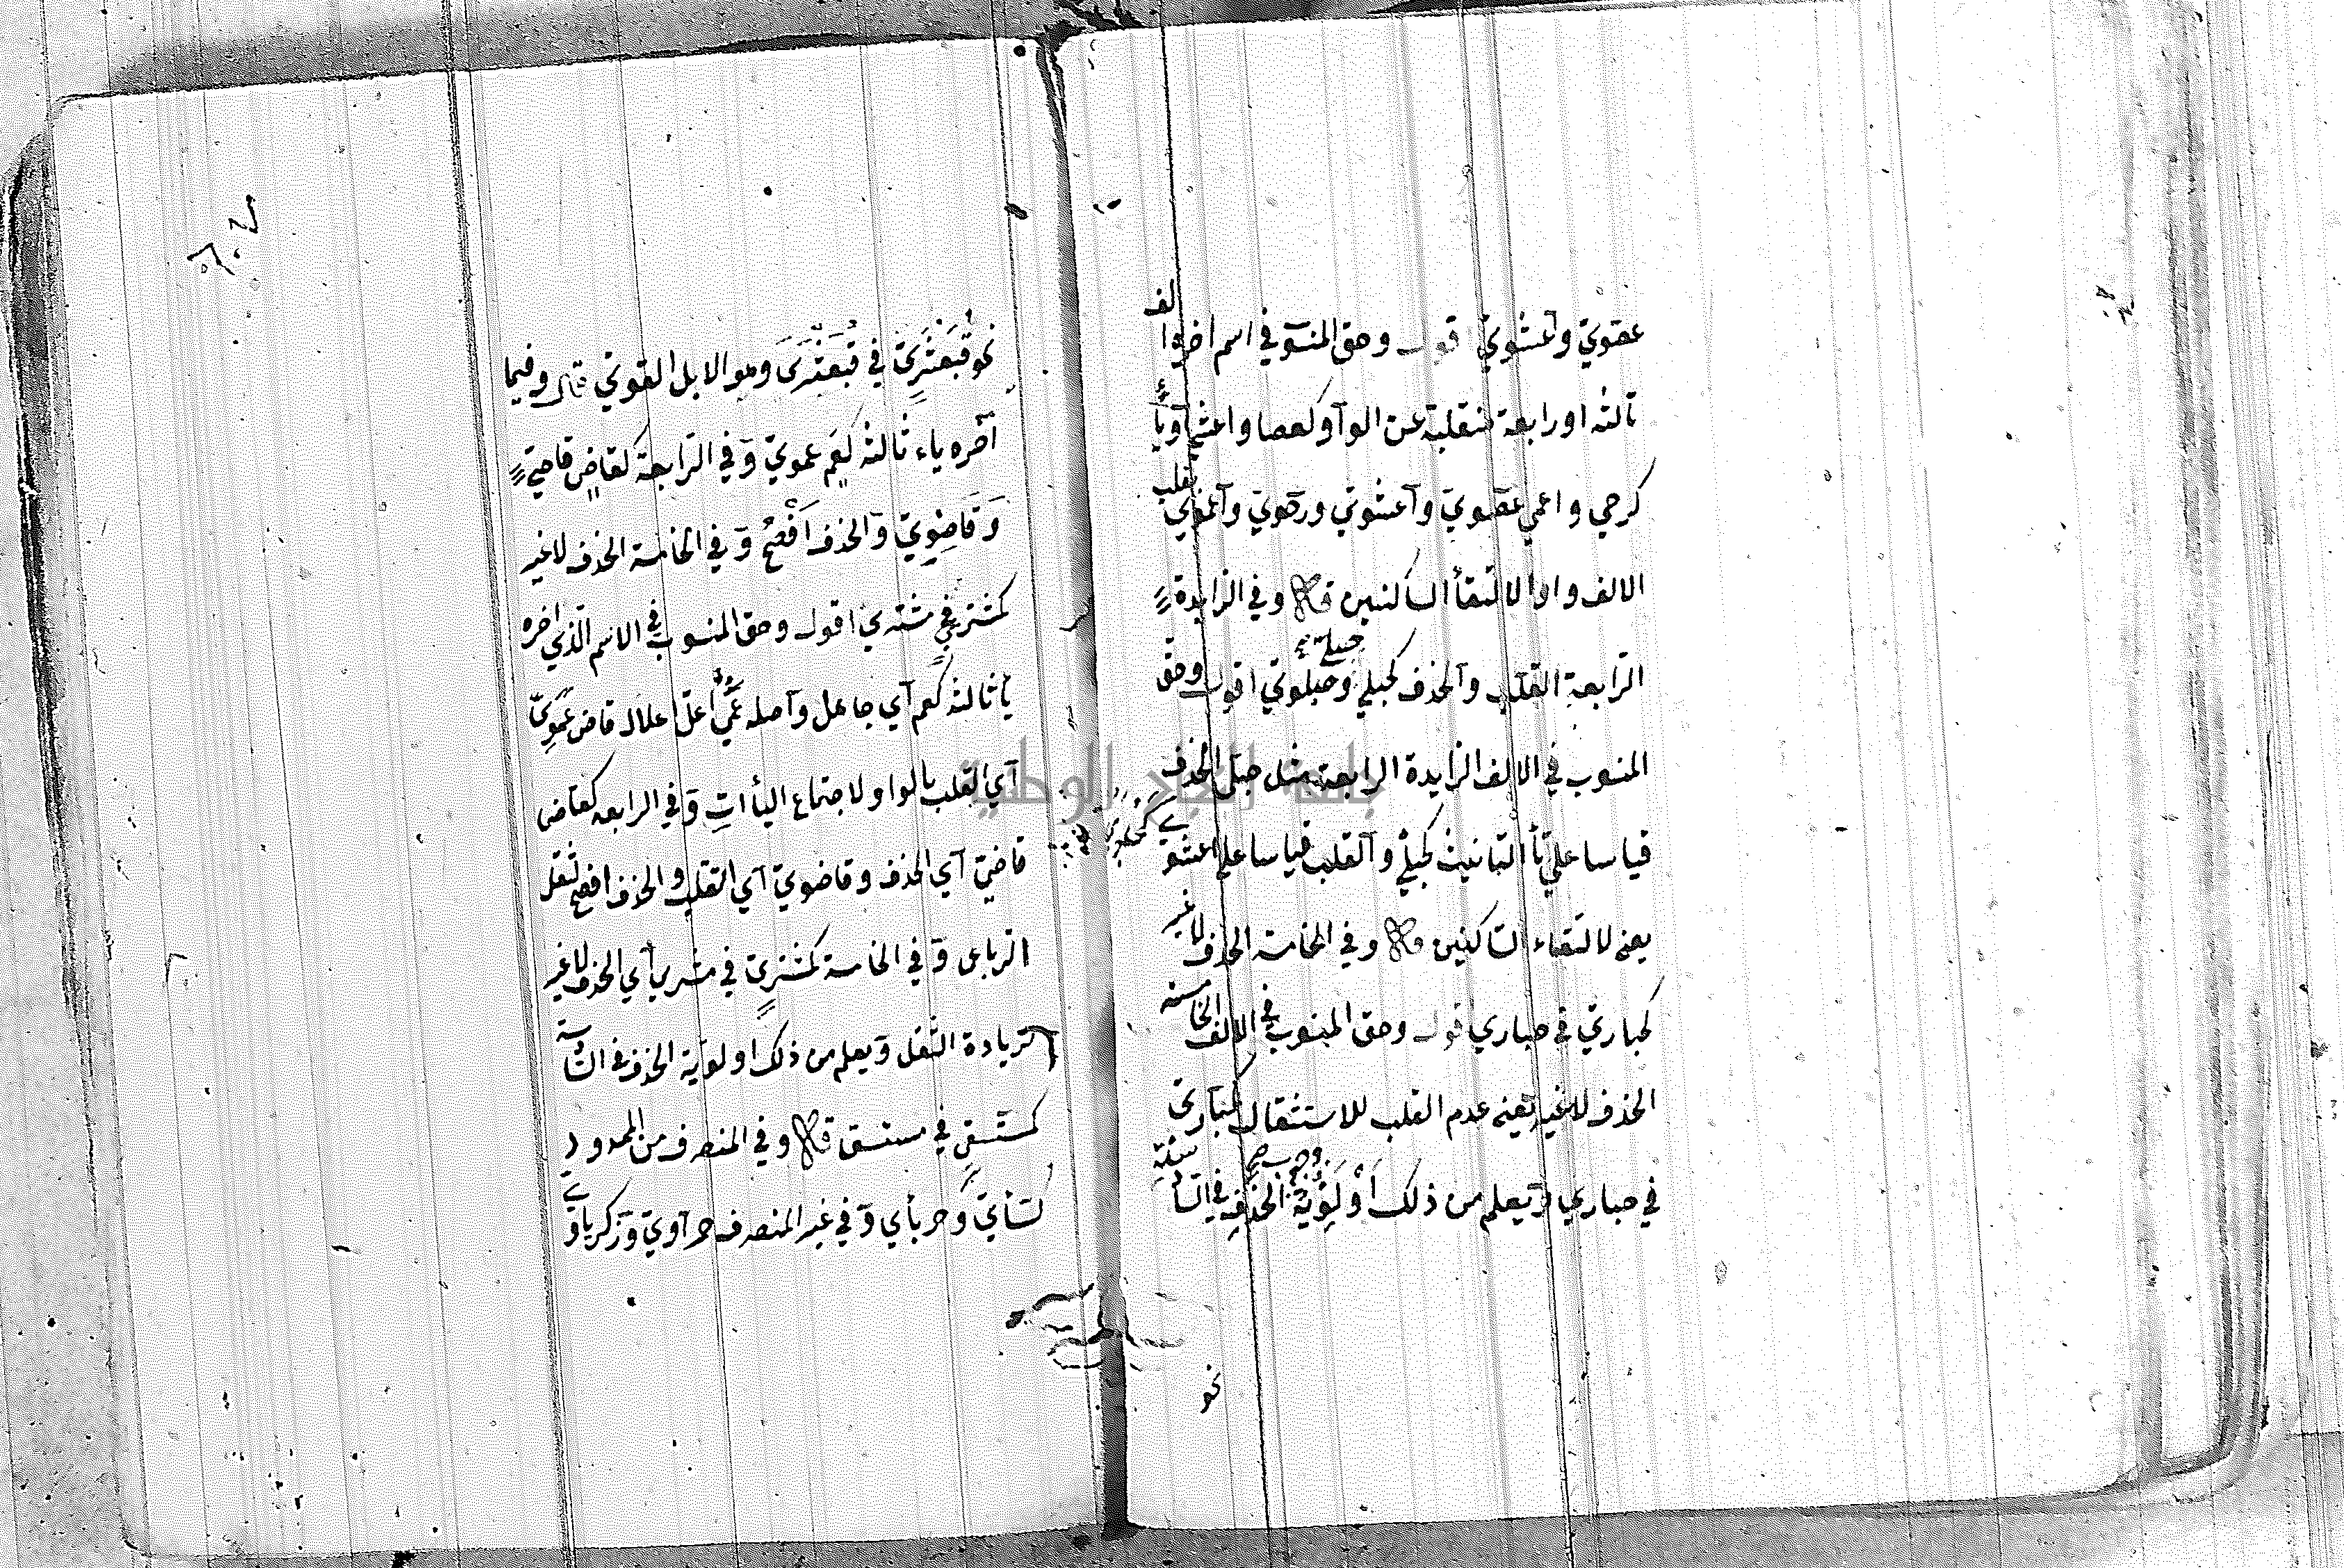 عقويّ وآعشويّ قول وحق المنسو في اسم اخره الف
ثالثه او رابعة منقلبة عن الوآو كعصا واعشي آو يأ
كرحي واعمي عصويّ وآعشويّ ورحويّ وآعمويّ بقلب
الالف واوا لالتقأ الساكنين قال وفي الزايدة
الرّابعة القلب والحذف كحبليّ وحبلويّ اقول وحق
المنسوب في الالف الزايدة الرابعة مثل حبلي الحذف
قياسا علي تأ التانيث كحبليّ وآلقلب قياسا علي اعشوي
يعني لالتقاء الساكنين قال وفي الخامسة الحذف لا غير
كحباريّ في حباري قول وحق المنسوب في الالف الخامسة
الحذف لا غير يعني عدم القلب للاستثقال كحباريّ
في حباري وٓيعلم من ذلك أَوْلَوِيّة الحذف في السا
نحو
نحو قُبَعْثَرِيّ في قُبَعْثَرَى وهو الابل القويّ قال وفيما
آخره ياء ثالثه كعَمٍ عمويّ وٓفي الرّابعة كقاضٍ قاضيّ
وَقَاضِوِيّ وٓالحذف اَفْصَحُ وٓفي الخامسة الحذف لا غير
كمشتريّ في مشتري اقول وحق المنسوب في الاسم الّذي اخره
يأ ثالثه كعم آي جاعل وآصله عَمِيٌ اعلّ اعلال قاض عَمَوِيّ
آي القلب بالواو لاجتماع اليأاتِ وٓفي الرابعه كقاض
قاضيّ آي الحذف وقاضويّ آي القلب والحذف افصح لثقل
الرباعي وٓفي الخامسة كمشتريّ في مشتري آي الحذف لا غير
لزيادة الثقل وٓيعلم من ذلك اولويّة الحذف في السّادسة
كمستسقيّ في مستسق قال وفي المنصرف من الممدود
كسأيّ وحربأي وٓفي غير المنصرف حمرآويّ وٓزكرياوي